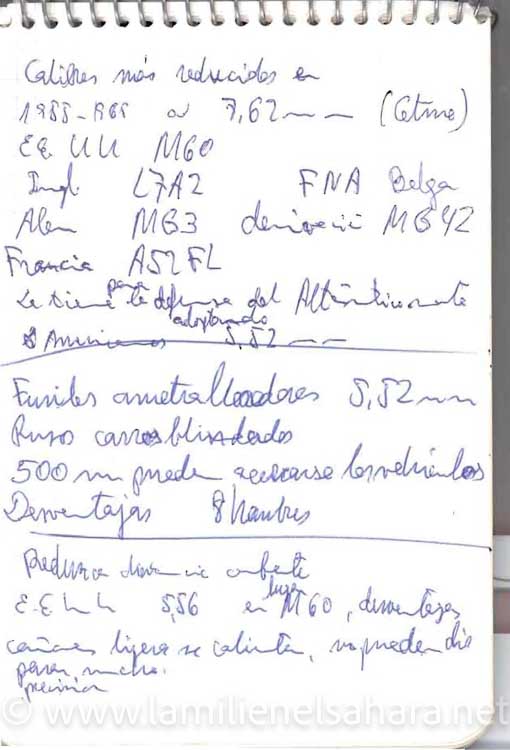 Calibres más reducidos en
1955-1965 7,62 mm (Cetme)
EE UU M60
Ingl. L7A2 FNA Belga
Alem MG3 MG42
Francia A52FL
Se tiene para la defensa del Atlántico norte
adoptando 5,52 mm
Fusiles ametralladores 5,52 mm
Rusos carros blindados
500 m pueden acercarse los vehículos
Desventajas 8 hombres
combate
E.E.UU 5,56 en lugar M60, desventajas
cañones ligera se calienta, no pueden dis
parar mucho.
© www.lamilienelsahara.net